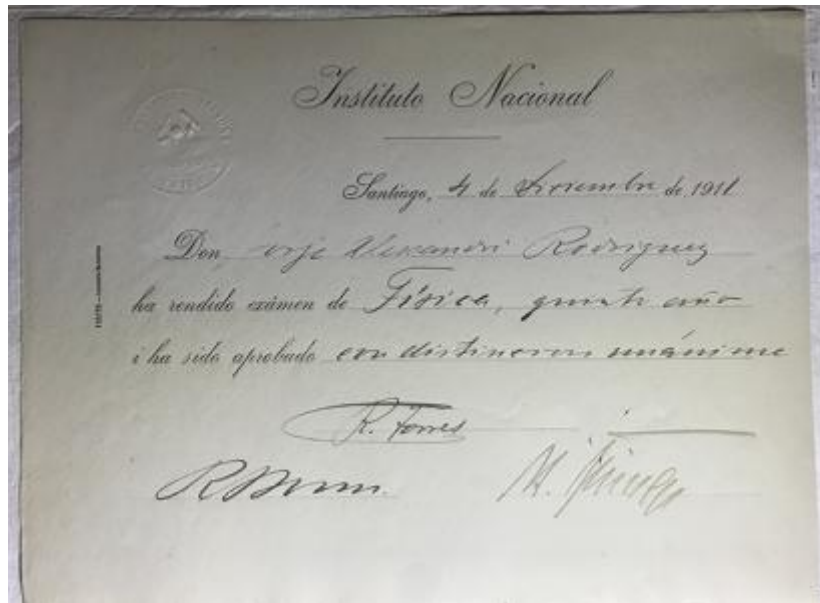 Instituto Nacional
Santiago, 4 de Diciembre de 1911
Don Jorje Alessandri Rodriguez
ha rendido exámen de Física, quinto año
i ha sido aprobado con distincion unánime
R. Torres